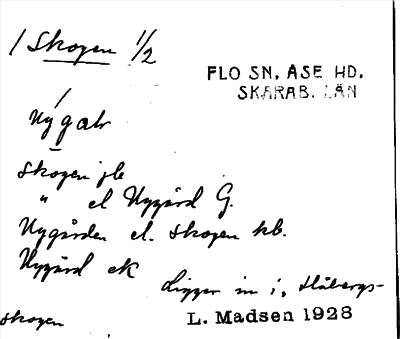 / Skogen 1/2
FLO SN, ÅSE HD.
SKARAB. LÄN
Nygatr
Skogen jb
" el Nygård G.
Nygården el. Skogen kb.
Nygård ek
Ligger in i, Håbergs-
skogen
L. Madsen 1928